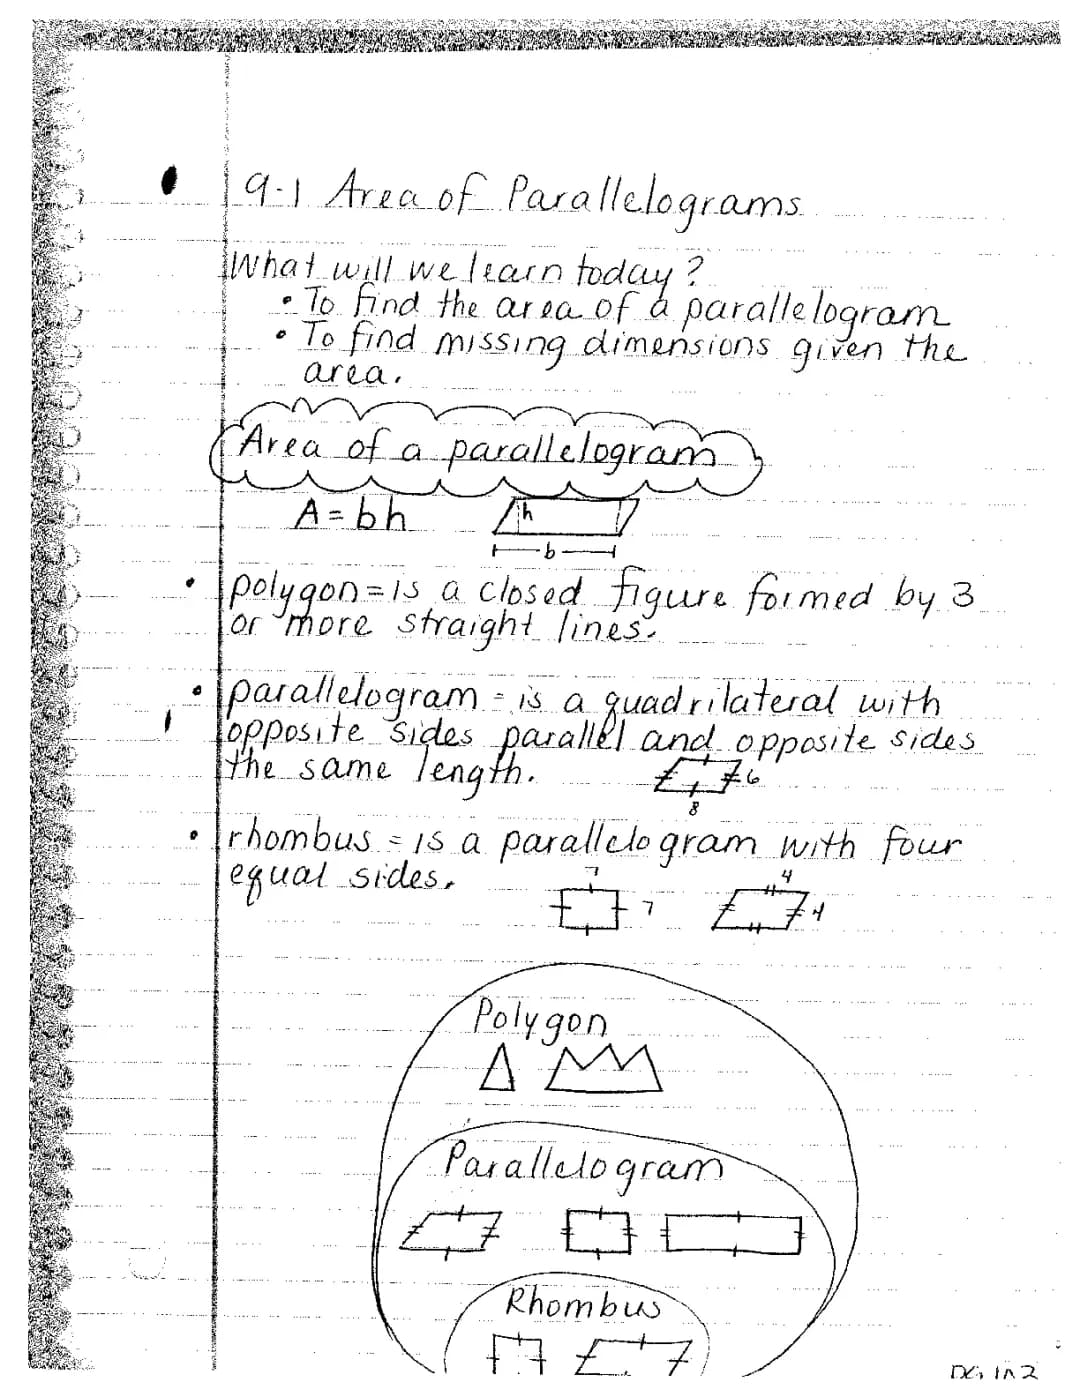 9-1 Area of Parallelograms
What will we learn today?
• To find the area of a parallelogram
• To find missing dimensions given the
area.
Area of a parallelogram
A = bh
h
b
• polygon = is a closed figure formed by 3
or more straight lines.
• parallelogram = is a quadrilateral with
opposite sides parallel and opposite sides
the same length.
6
8
• rhombus = is a parallelogram with four
equal sides.
7
4
7
4
Polygon
Parallelogram
Rhombus